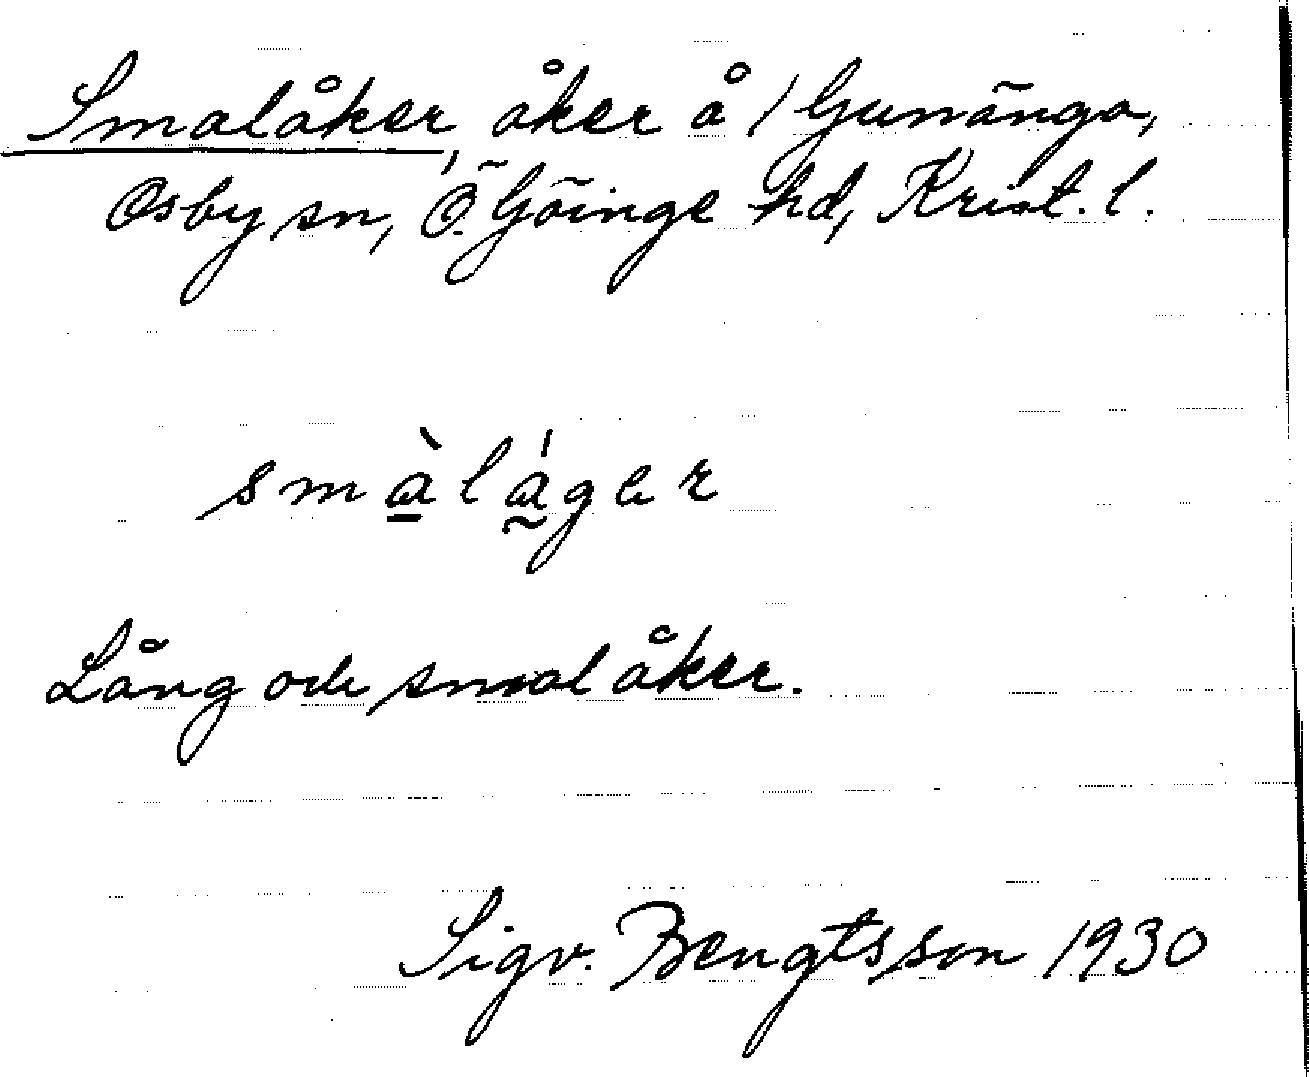 Smalåker, åker å 1 Gunänga,
Osby sn, Ö. Göinge hd, Krist. l.
smàláger
Lång och smal åker.
Sigv. Bengtsson 1930